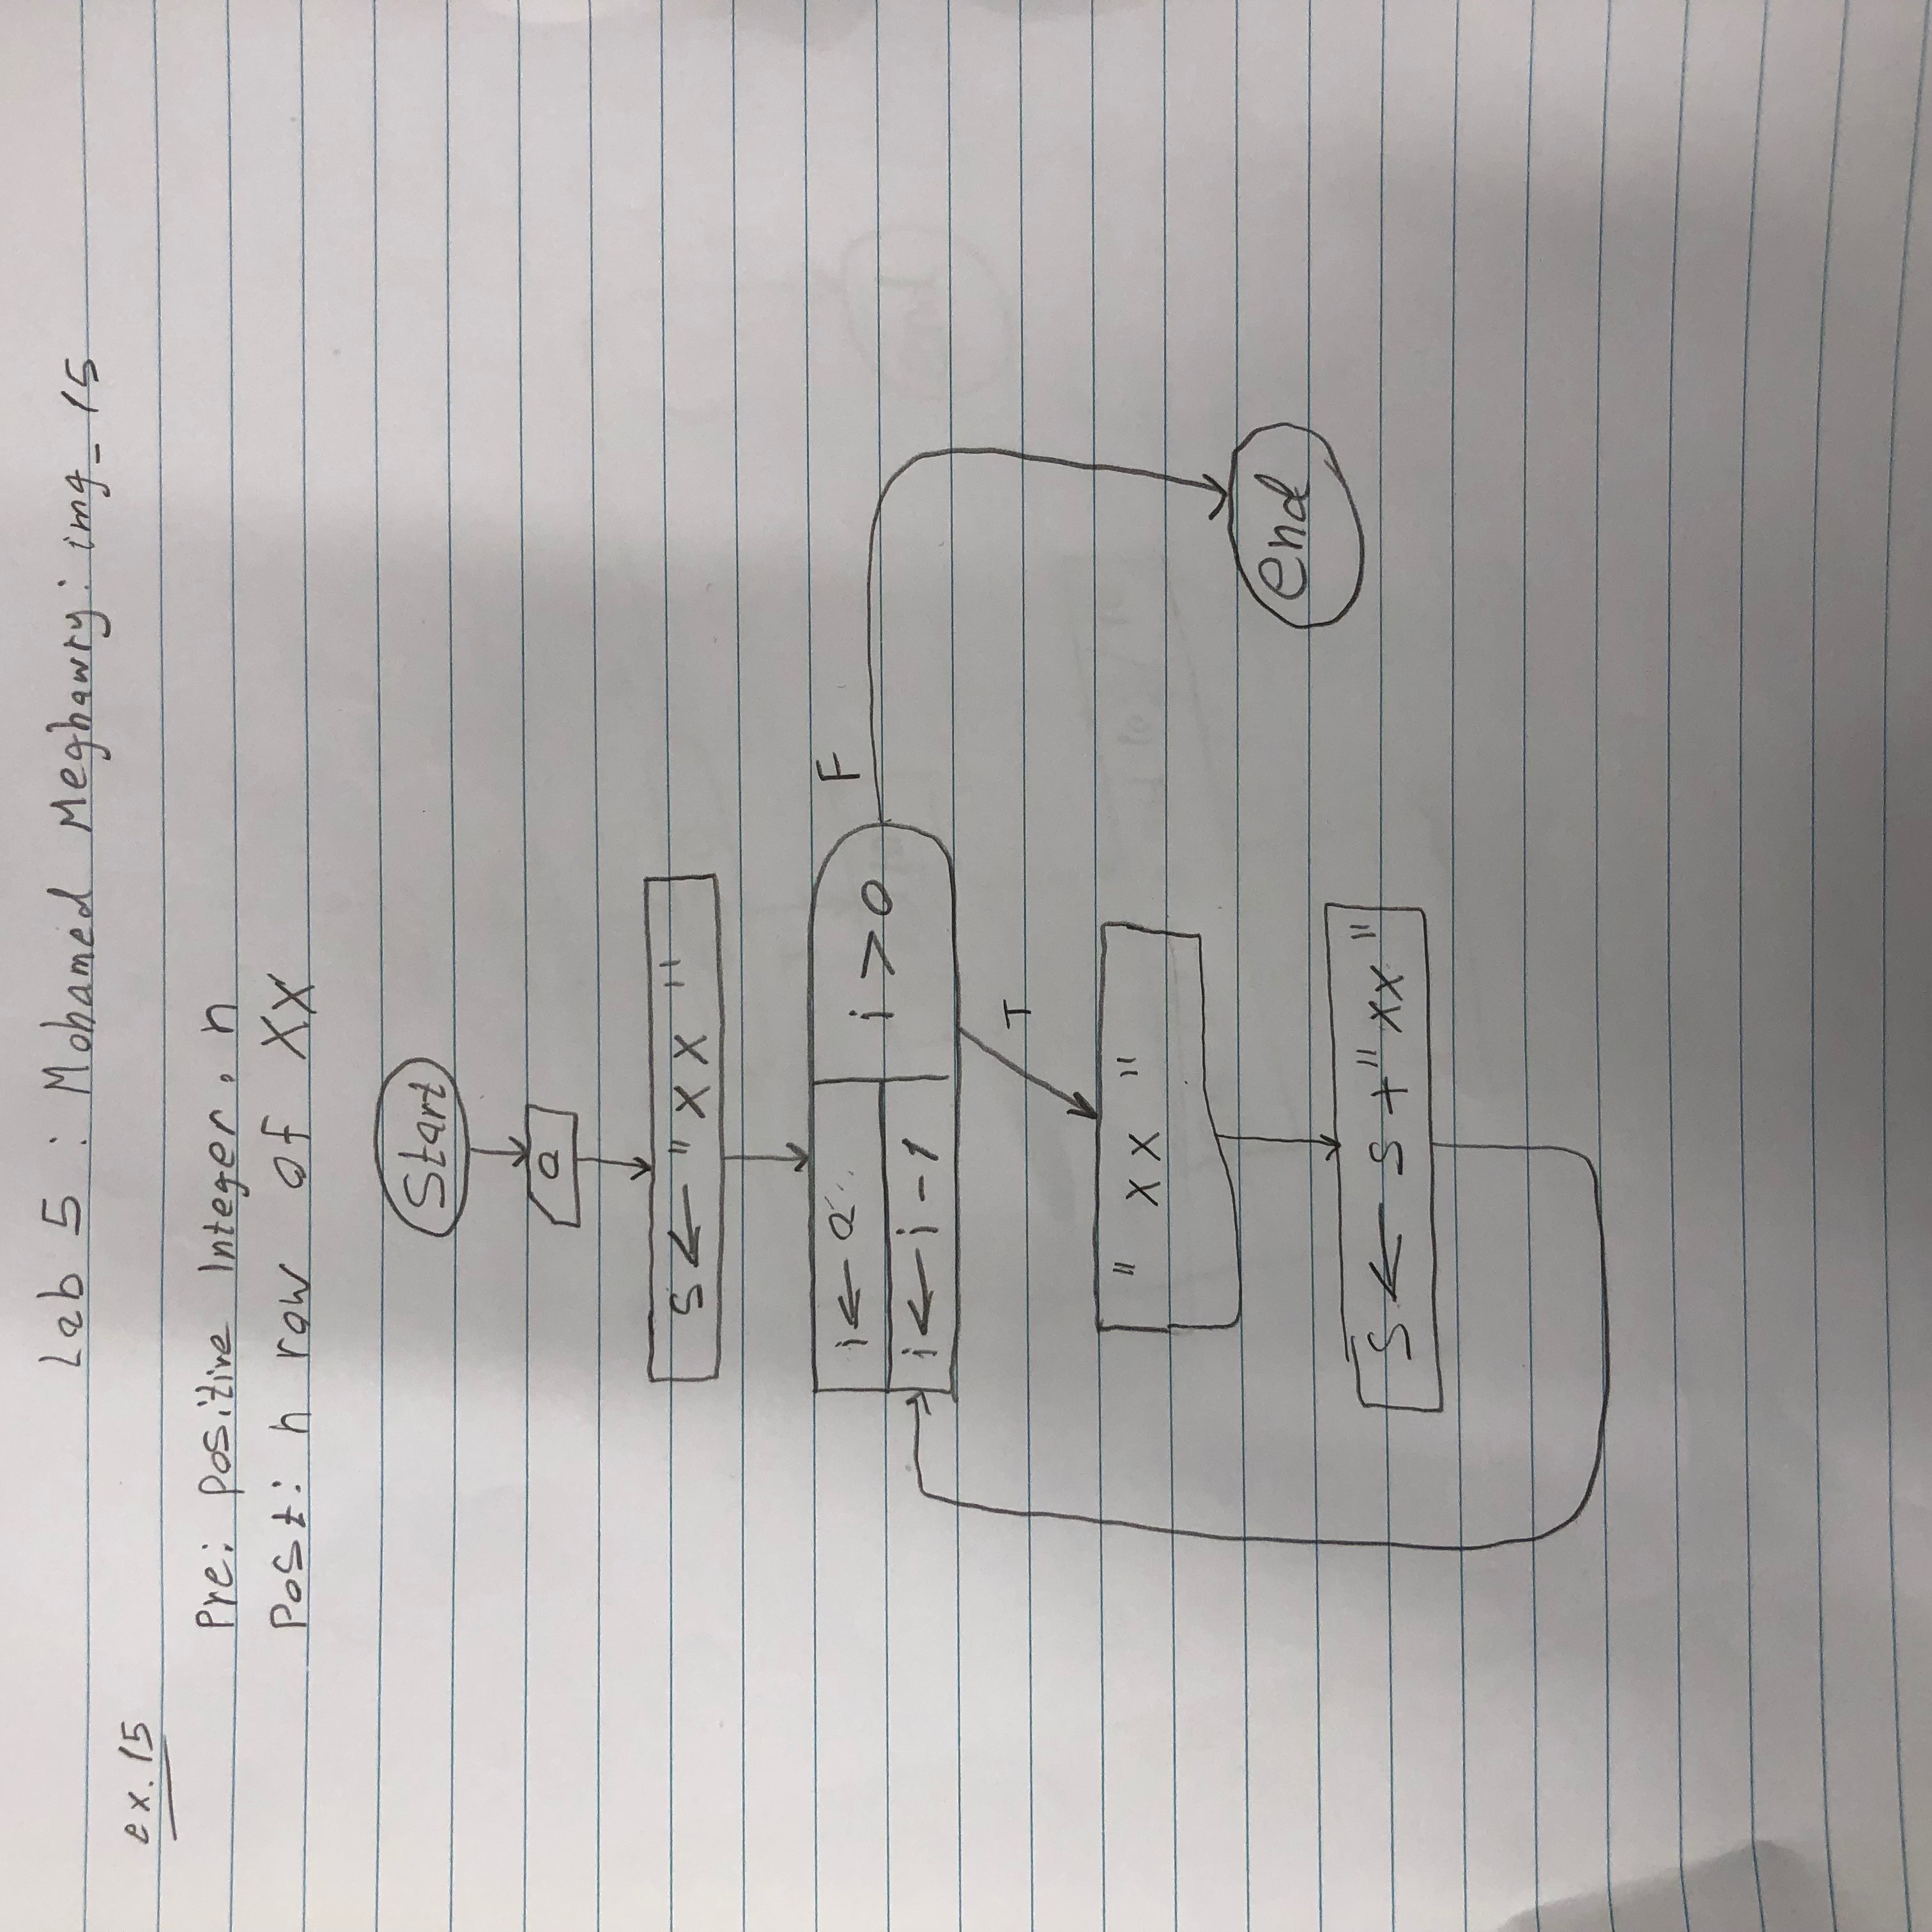 Lab 5 : Mohamed Meghawry: img_15
ex. 15
Pre: positive Integer, n
Post: n row of XX
Start
a
S ← "XX "
i ← a
i > 0
F
i ← i - 1
T
" XX "
end
S ← S + "XX "